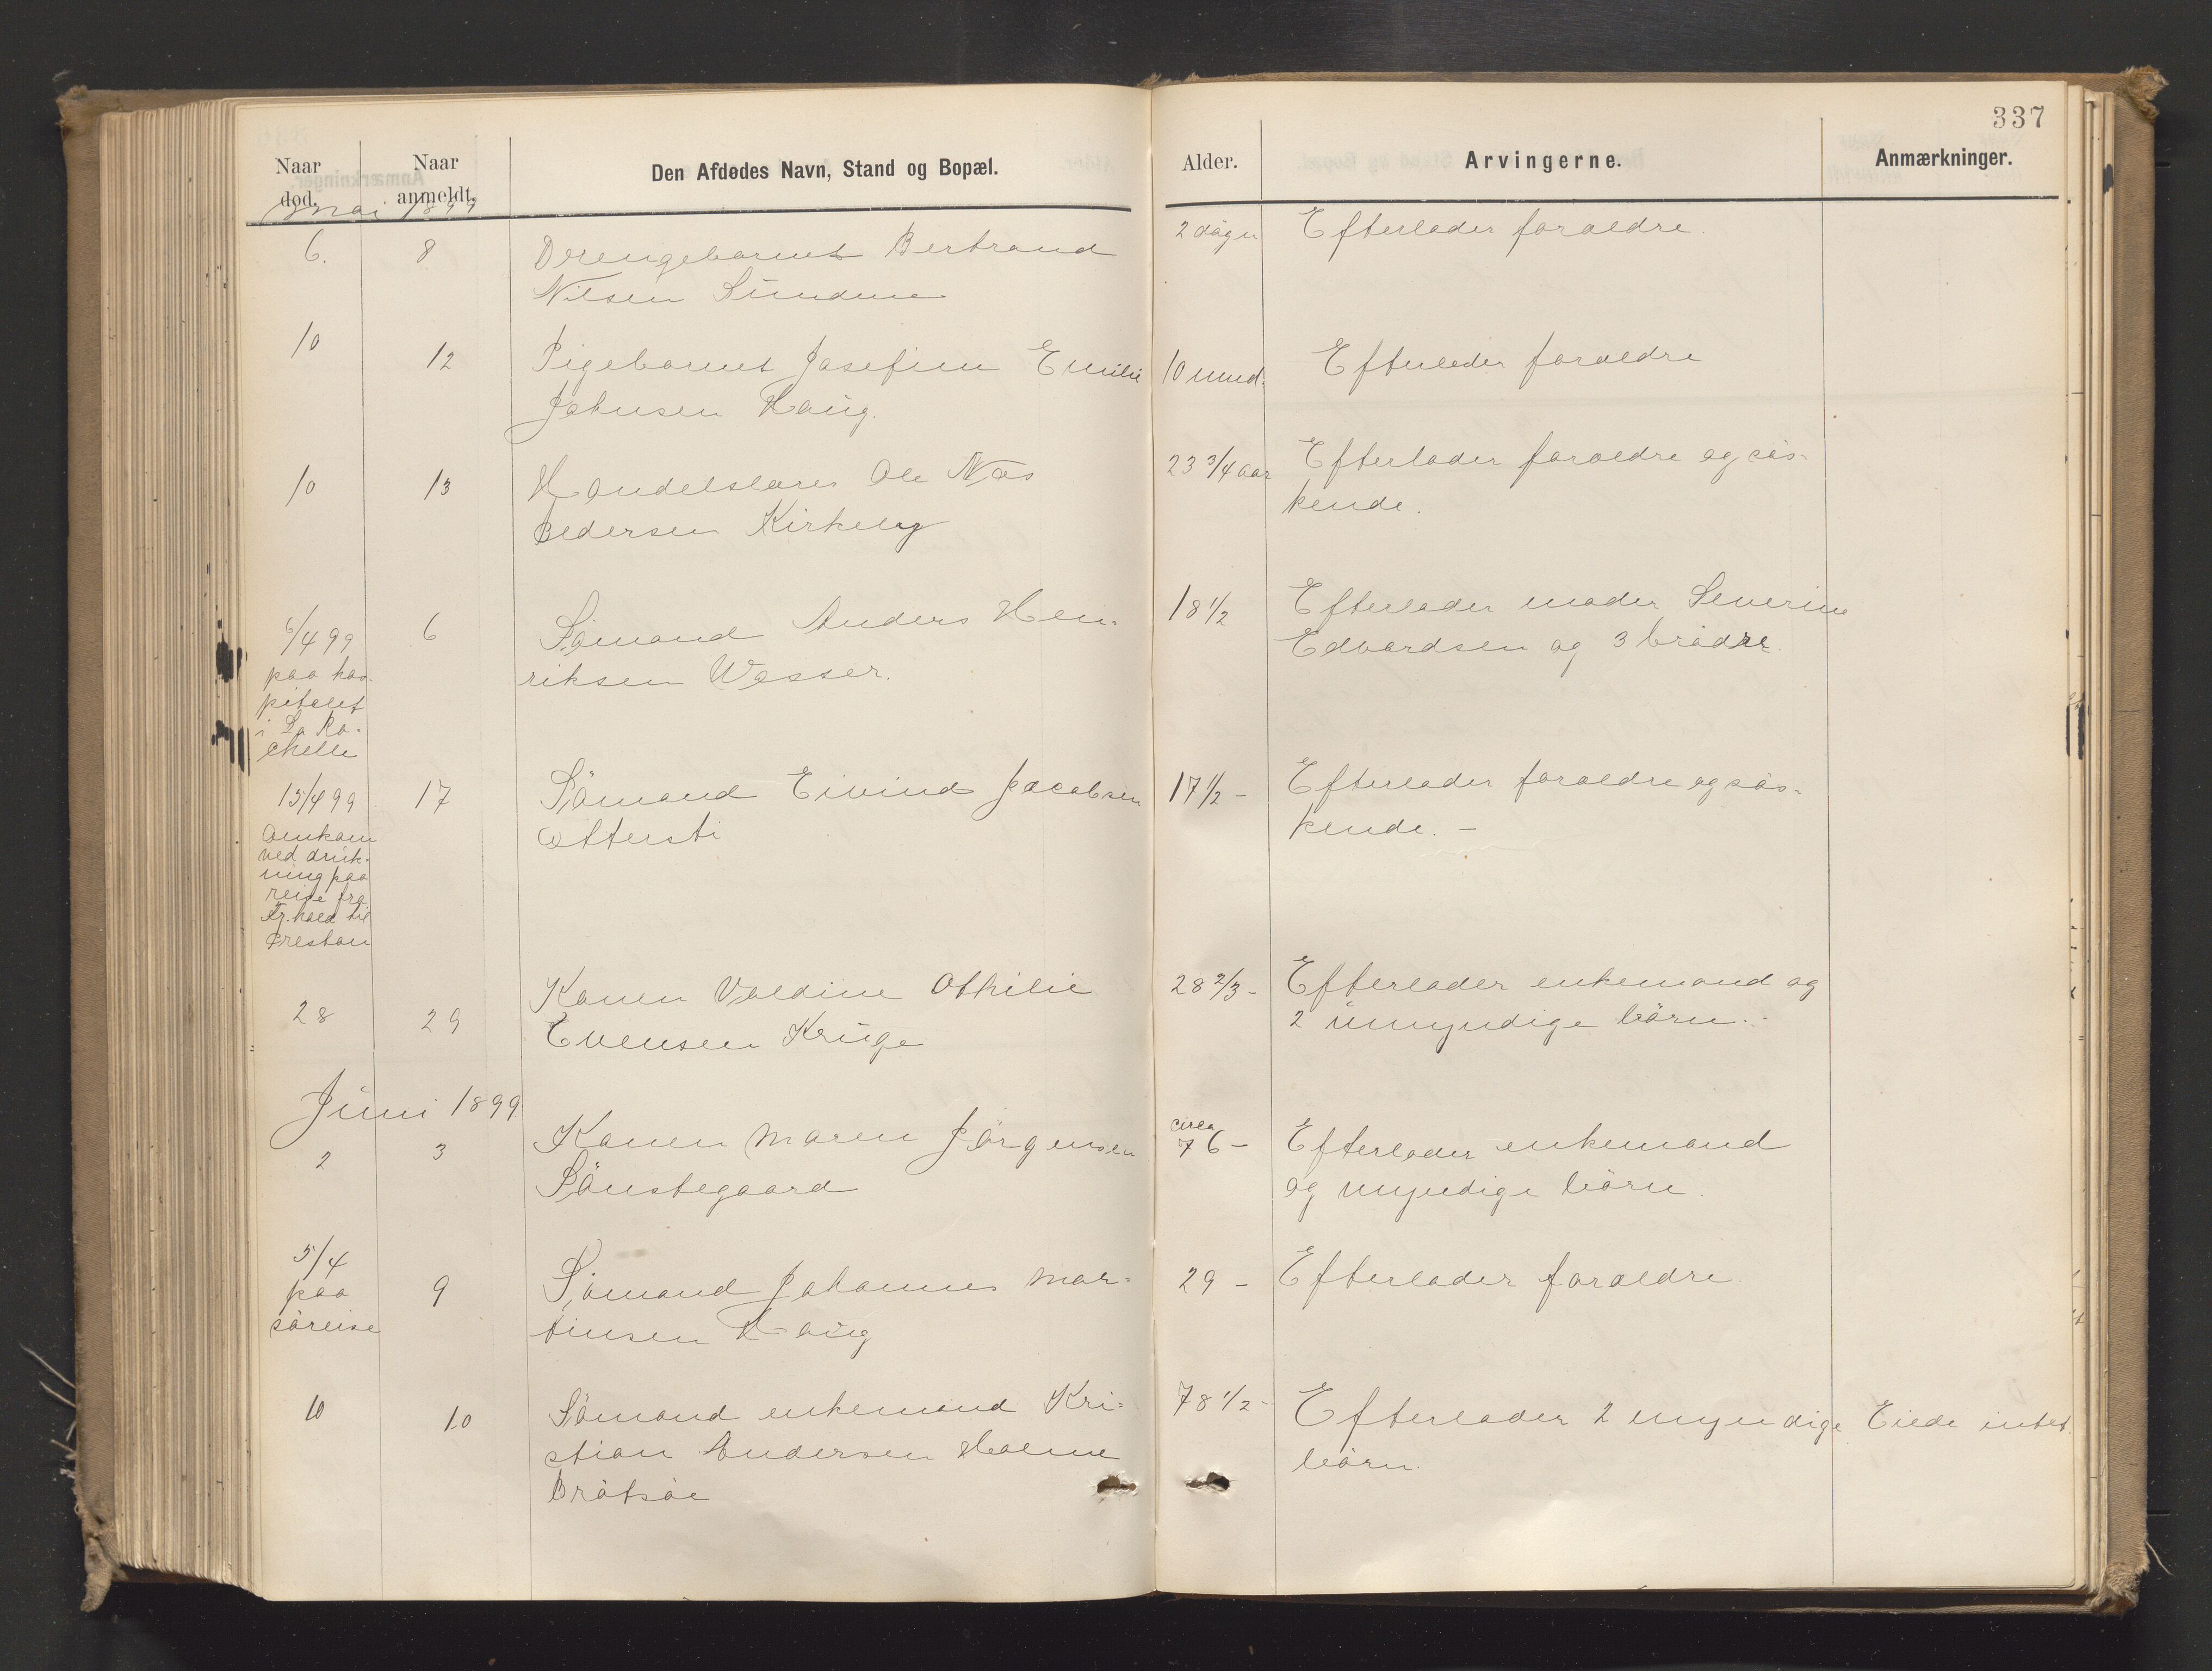 337
Naar
død.
Naar
anmeldt.
Den Afdødes Navn, Stand og Bopæl.
Alder.
Arvingerne.
Anmærkninger.
Mai 1899
6.
8
Drengebarnet Bertrand
Nilsen Sundene
2 dage
Efterlader foræeldre.
10
12
Pigebarnet Josefine Emilie
Johnsen Haug.
10 mnd.
Efterlader foræeldre
10
13
Handelslærer Ole Næs
Pedersen Kirkeby
23 3/4 aar
Efterlader foræeldre og søs-
kende.
6/4 99
paa hos-
pitalet
i La Ro-
chelle
6
Sømand Anders Hen-
riksen Vasser.
18 1/2
Efterlader moder Severine
Edvardsen og 3 brødre.
15/4 99
Omkom
ved druk-
ning paa
reise fra
Fr.hald til
Preston
17
Sømand Eivind Jacobsen
Ottersti
17 1/2 -
Efterlader foræeldre og søs-
kende. -
28
29
Konen Valdine Othilie
Evensen Kruge
28 2/3 -
Efterlader enkemand og
2 umyndige børn.
Juni 1899
2
3
Konen Maren Jörgensen
Sønstegaard
circa
76 -
Efterlader enkemand
og myndige børn.
5/4
paa
søreise
9
Sømand Johannes Mar-
tinsen Haug
29 -
Efterlader foræeldre
10
10
Sømand enkemand Kri-
stian Andersen Holme
Brøtsøe
78 1/2 -
Efterlader 2 myndige
børn.
Eiede intet.